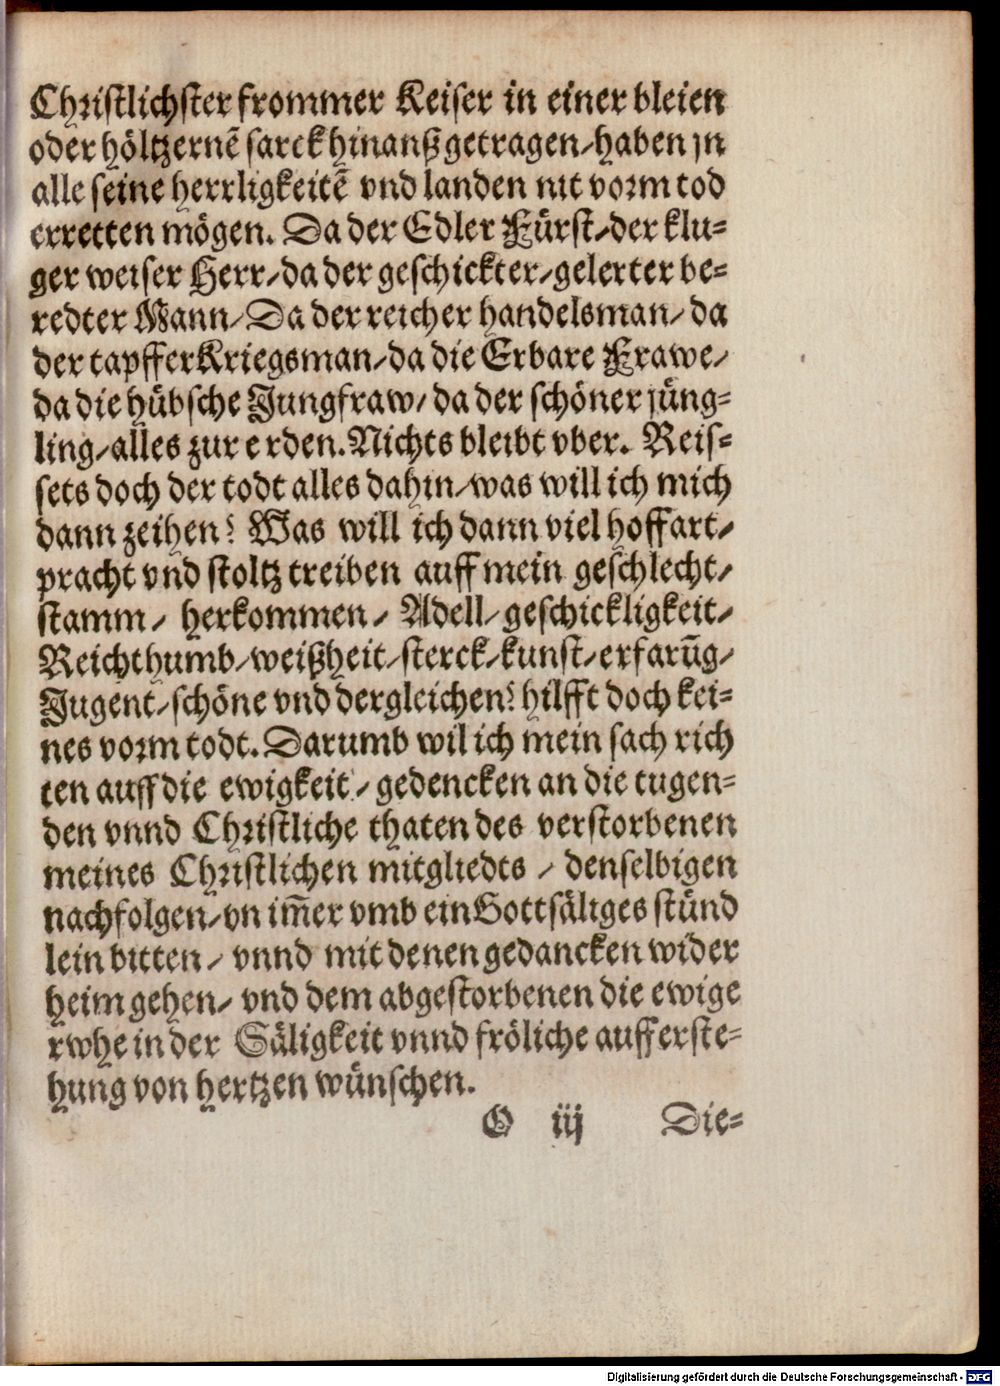 Christlichster frommer Keiser in einer bleien
oder höltzernē sarck hinanß getragen/ haben jn
alle seine herrligkeitē vnd landen nit vorm tod
erretten mögen. Da der Edler Fürst/ der klu=
ger weiser Herr/ da der geschickter/ gelerter be=
redter Mann/ Da der reicher handelsman/ da
der tapffer Kriegsman/ da die Erbare Frawe/
da die hübsche Jungfraw/ da der schöner jüng=
ling/ alles zur erden. Nichts bleibt vber. Reis=
sets doch der todt alles dahin/ was will ich mich
dann zeihen? Was will ich dann viel hoffart/
pracht vnd stoltz treiben auff mein geschlecht/
stamm/ herkommen/ Adell/ geschickligkeit/
Reichthumb/ weißheit/ sterck/ kunst/ erfarūg/
Jugent/ schöne vnd dergleichen? hilfft doch kei=
nes vorm todt. Darumb wil ich mein sach rich
ten auff die ewigkeit/ gedencken an die tugen=
den vnnd Christliche thaten des verstorbenen
meines Christlichen mitgliedts/ denselbigen
nachfolgen/ vn im̄er vmb ein Gottsäliges stünd
lein bitten/ vnnd mit denen gedancken wider
heim gehen/ vnd dem abgestorbenen die ewige
rwhe in der Säligkeit vnnd fröliche aufferste=
hung von hertzen wünschen.
G iij Die=
Digitalisierung gefördert durch die Deutsche Forschungsgemeinschaft - DFG